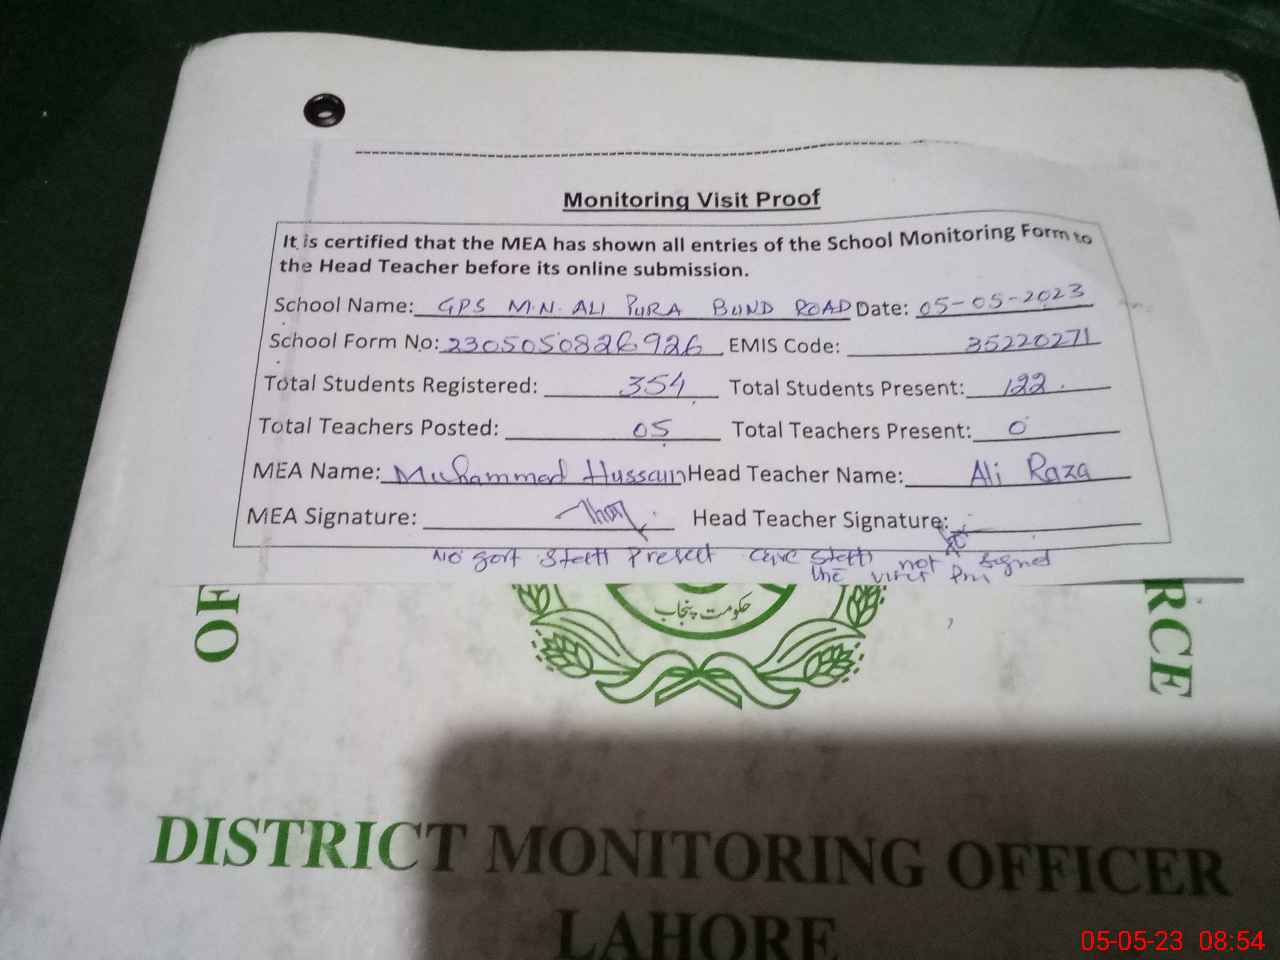 Monitoring Visit Proof
It is certified that the MEA has shown all entries of the School Monitoring Form to
the Head Teacher before its online submission.
School Name: GPS M.N. ALI PURA BUND ROAD Date: 05-05-2023
School Form No: 2305050826926 EMIS Code: 35220271
Total Students Registered: 354 Total Students Present: 122
Total Teachers Posted: 05 Total Teachers Present: 0
MEA Name: Muhammad Hussain Head Teacher Name: Ali Raza
MEA Signature: Head Teacher Signature:
No Staff Present Staff not signed
the
حکومت پنجاب
OF
RCE
DISTRICT MONITORING OFFICER
LAHORE
05-05-23 08:54